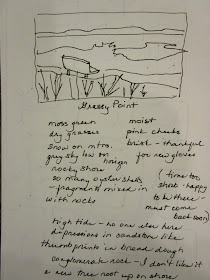 Grassy Point
moss green moist
dry grasses pink cheeks
snow on mtns. brisk - thankful
gray sky low on for new gloves
horizon
rocky shore
so many oyster shells (time too
- fragments mixed in short - happy
with rocks to be there -
must come
back soon)
high tide - no one else here
depressions in sandstone like
thumbprints in bread dough
conglomerate rock - I don't like it
a new tree root up on shore